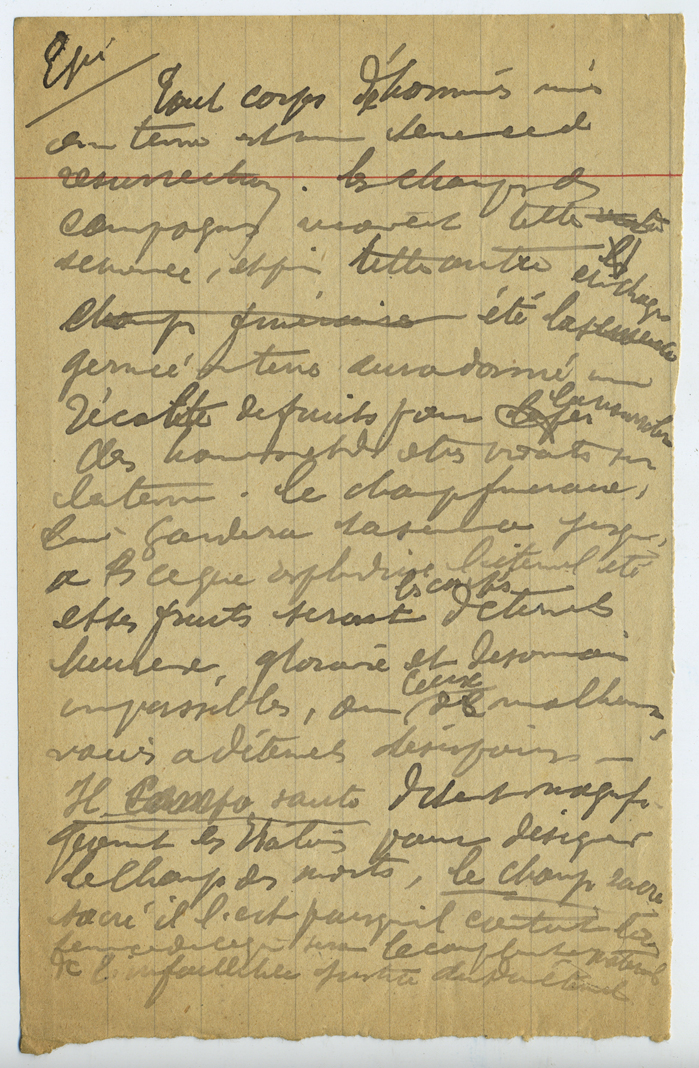 Epi
Tout corps d'hommes mis
en terre est une semence de
resurrection. les champs des
campagnes recoivent cette
semence, et puis cette autre et chaque
champ funéraire été la semence
germée en terre aura donné une
récolte de fruits pour
des hommes et des etres vivants sur
la terre. le champ funeraire,
lui gardera sa semence jusqu'
a ce que l'éternel été
et ses fruits seront les corps d'éternels
heureux, glorieux et desormais
impassibles, ou ceux des malheureux
voués a d'éternels désespoirs —
Il Campo santo disent magnifi-
quement les Italiens pour désigner
le champ des morts, le champ sacré
sacré il l'est puisqu'il contient la
semence de ce qui sera le
de l'infaillible justice